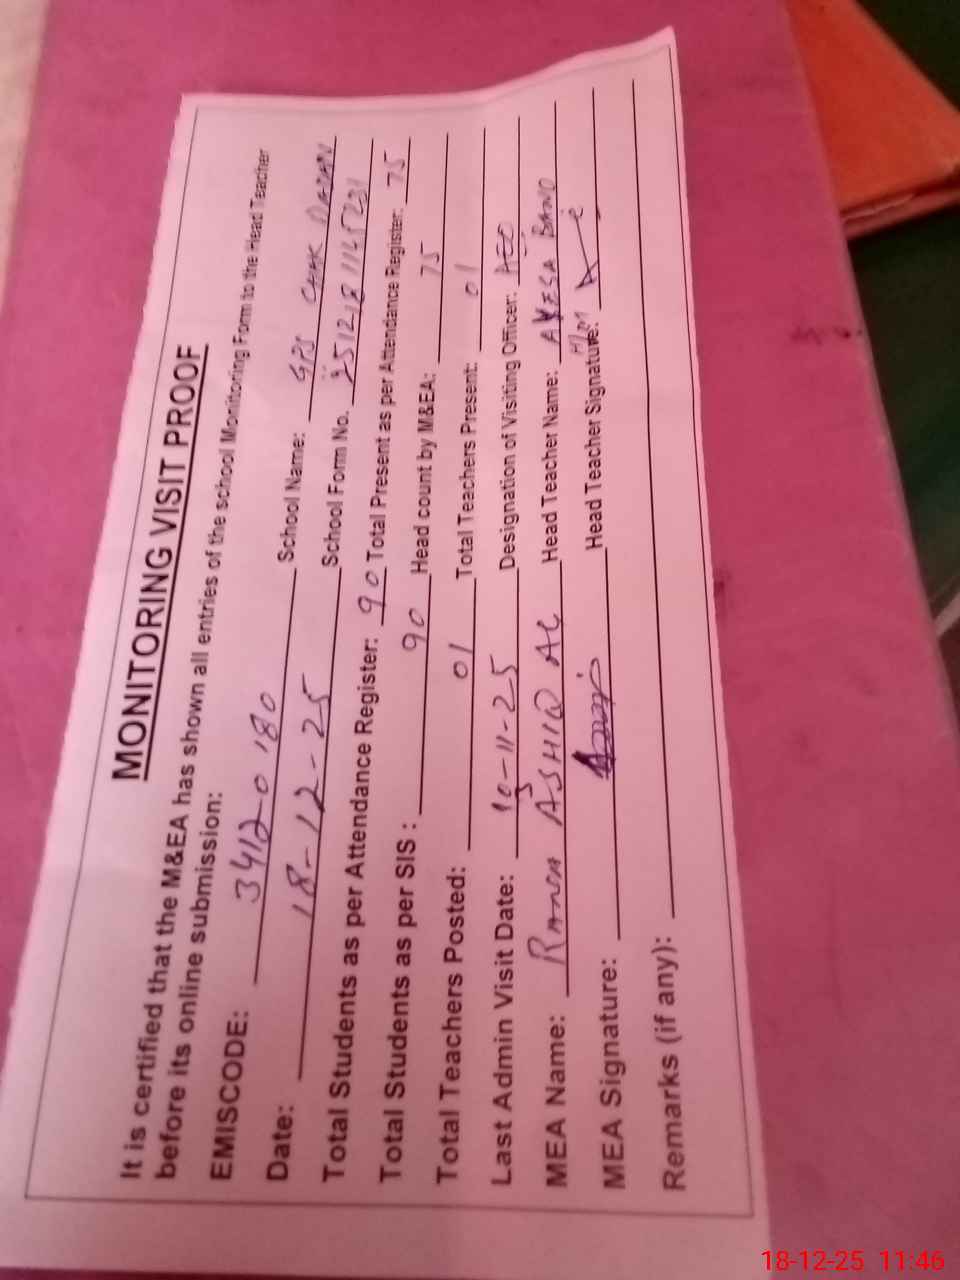 MONITORING VISIT PROOF
It is certified that the M&EA has shown all entries of the school Monitoring Form to the Head Teacher
before its online submission:
EMISCODE: 34120180 School Name: GPS CHAK
Date: 18-12-25 School Form No. 251218114523
Total Students as per Attendance Register: 90 Total Present as per Attendance Register: 75
Total Students as per SIS : 90 Head count by M&EA: 75
Total Teachers Posted: 01 Total Teachers Present: 01
Last Admin Visit Date: -11-25 Designation of Visiting Officer: AEO
MEA Name: RANA ASHIQ AL Head Teacher Name: AYESA BANO
MEA Signature: Head Teacher Signature:
Remarks (if any):
18-12-25 11:46